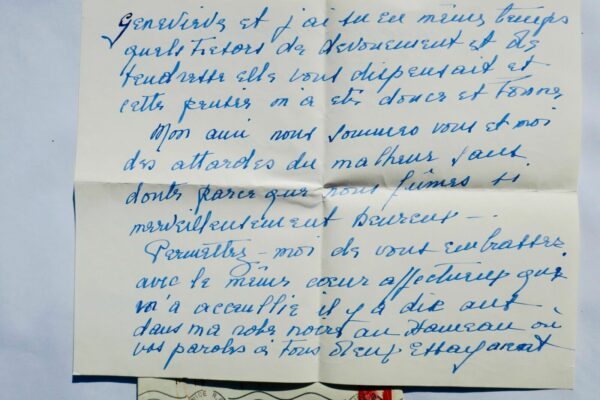 Geneviève et j'ai su en même temps
quels trésors de dévouement et de
tendresse elle vous dispensait et
cette pensée m'a été douce et bonne
Mon ami nous sommes vous et moi
des attardés du malheur sans
doute parce que nous fûmes si
merveilleusement heureux -
Permettez-moi de vous embrasser
avec le même cœur affectueux qui
m'a accueillie il y a dix ans
dans ma robe noire au Hameau où
vos paroles à tous deux essayaient